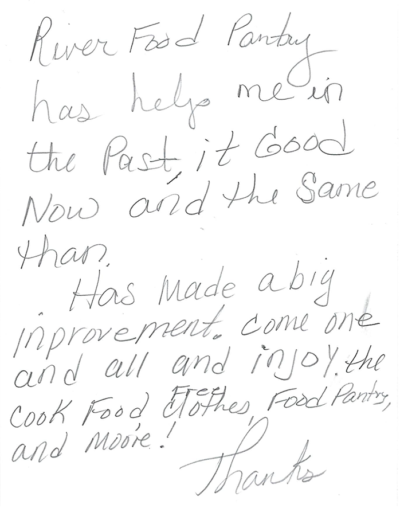 River Food Pantry
has help me in
the Past, it Good
Now and the Same
than.
Has Made a big
inprovement. Come one
and all and injoy. the
Cook Food, Free Clothes, Food Pantry,
and Moore!
Thanks